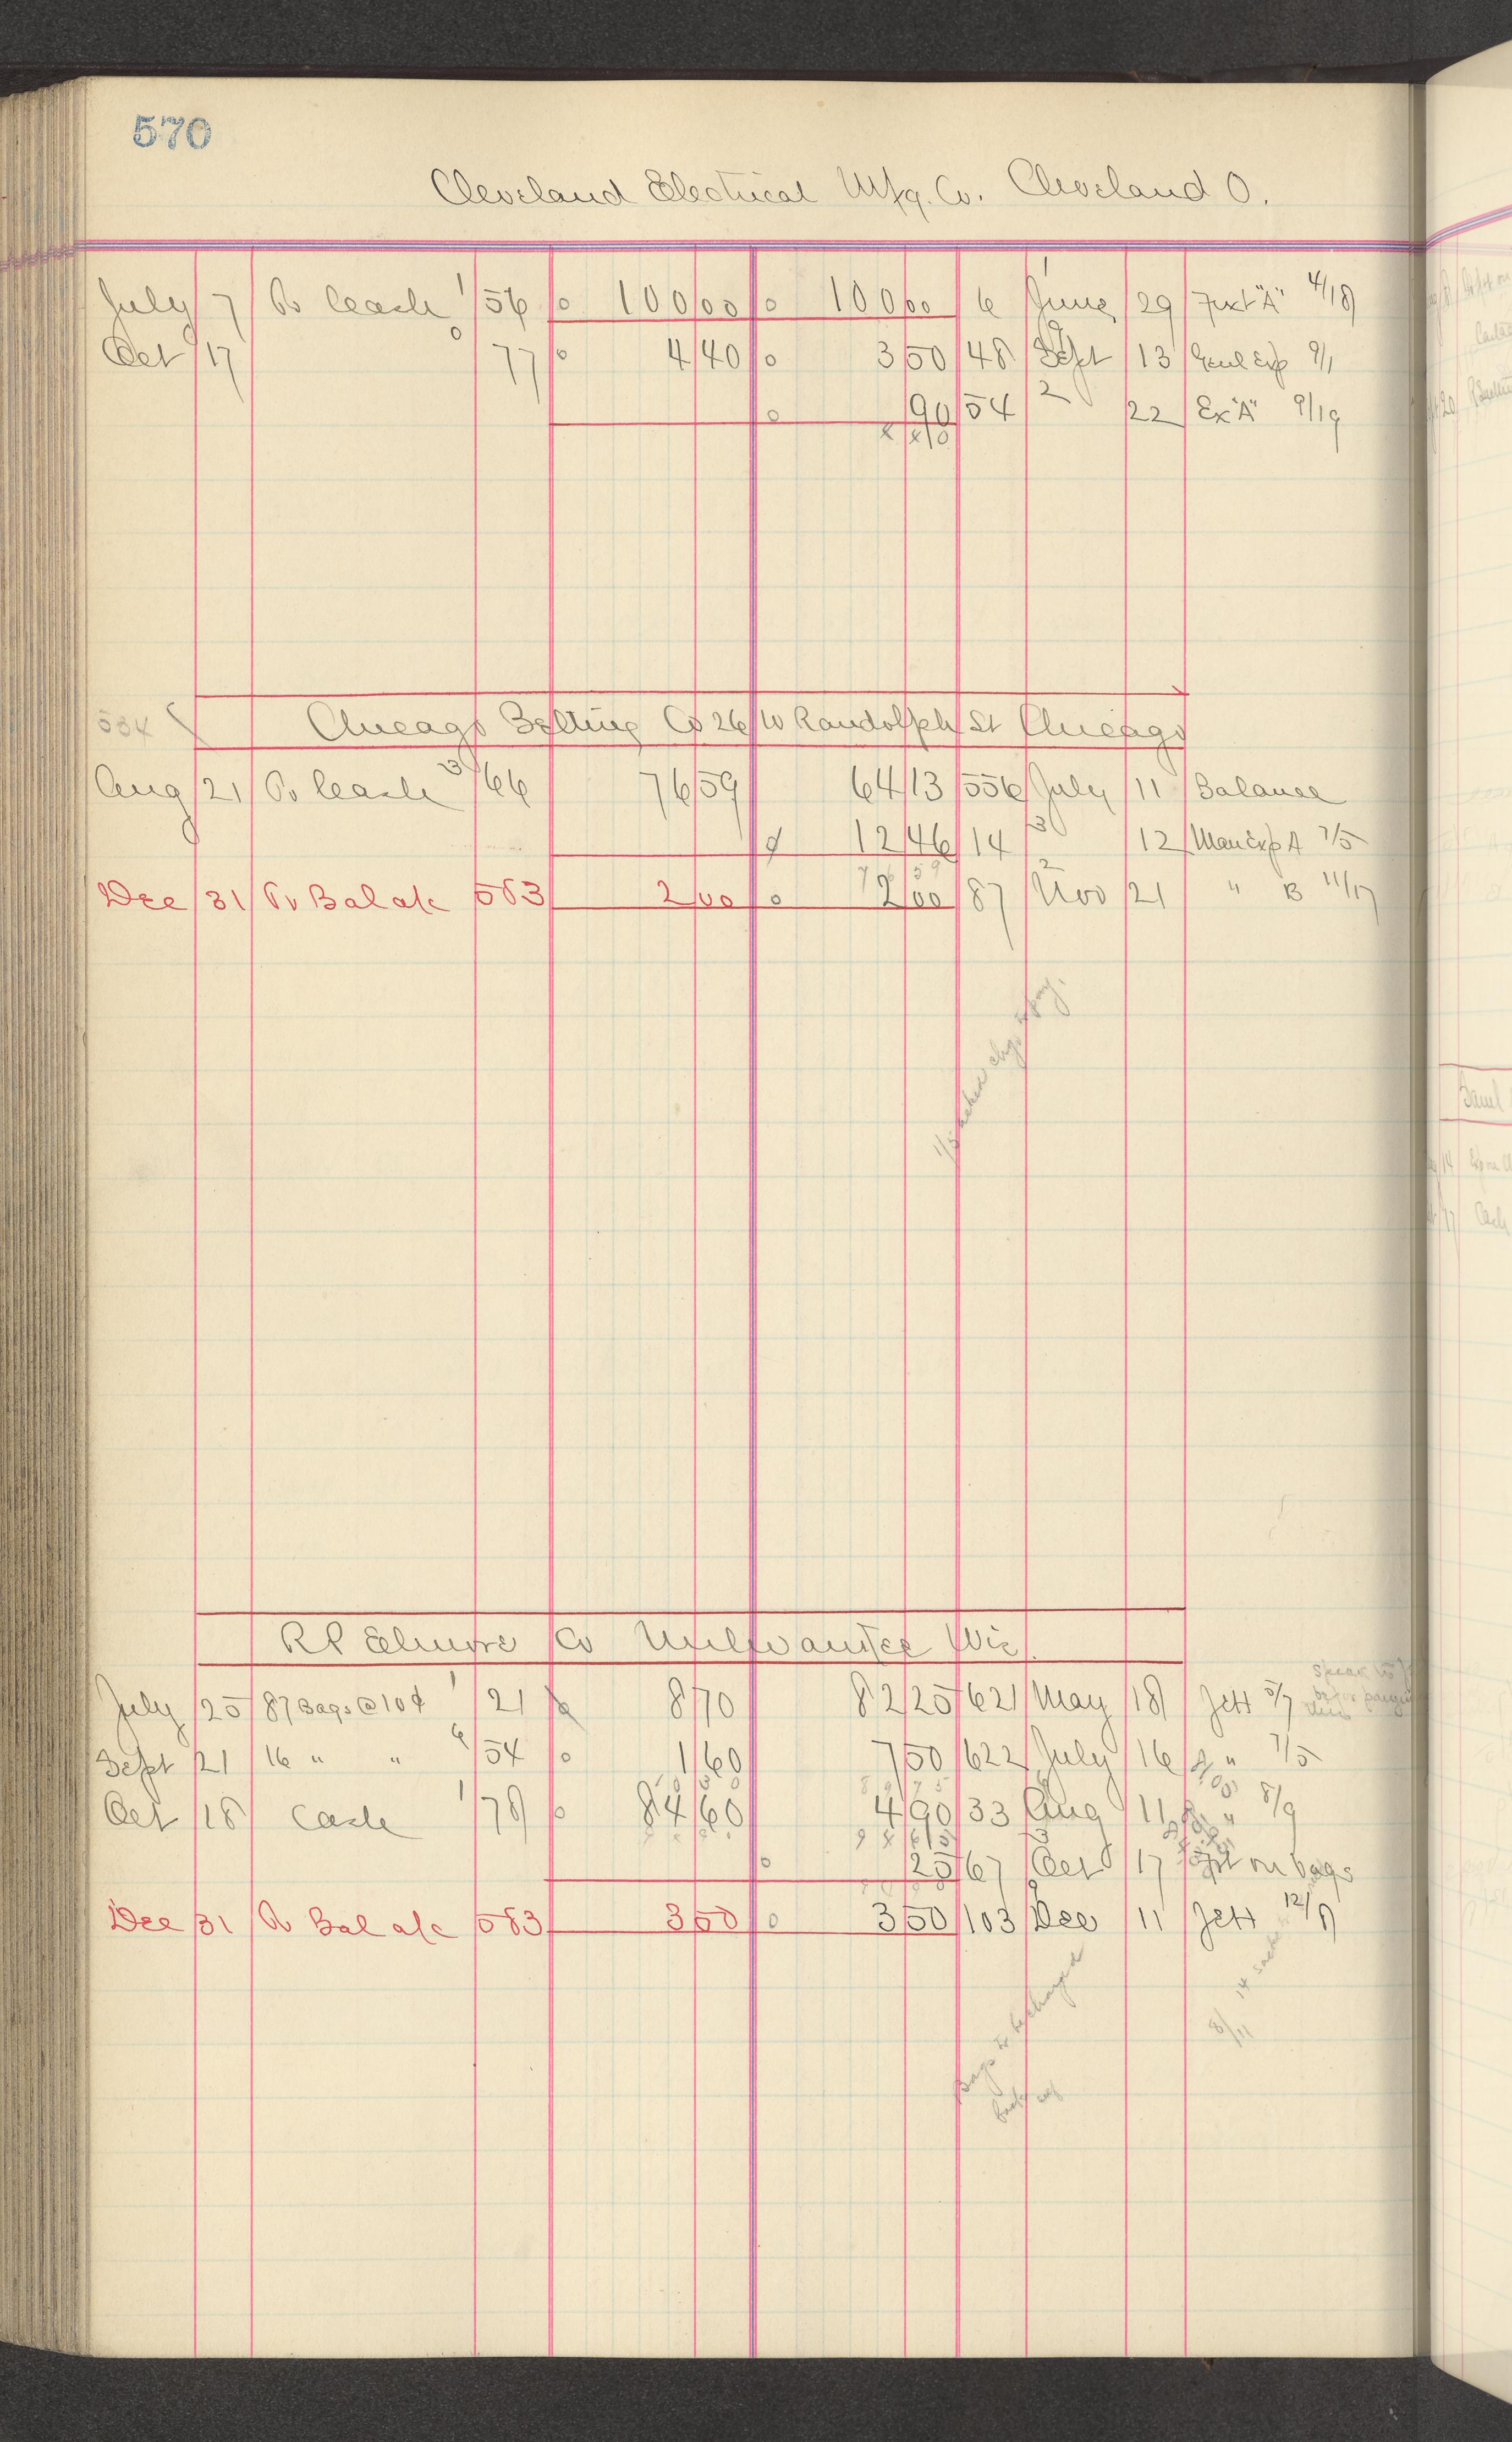 570
Cleveland Electrical Mfg. Co. Cleveland O.
July 7 To Cash 1 56 0 100 00 0 100 00 6 June 1 29 "A" 4/18
Oct 17 0 77 0 4 40 0 3 50 48 Sept 13 Genl Exp 9/1
0 90 54 2 22 Ex "A" 9/19
Chicago Belting Co 26 W Randolph St Chicago
Aug 21 To Cash 3 66 76 59 64 13 556 July 11 Balance
12 46 14 3 12 Man Exp A 7/5
76 59
Dec 31 To Bal a/c 583 2 00 0 2 00 87 Nov 2 21 " B 11/17
R P Elmore Co Milwaukee Wis
July 25 87 Bags @ 10¢ 1 21 8 70 82 25 621 May 18 Jett 5/7
Sept 21 16 " " 6 54 0 1 60 7 50 622 July 16 " 7/5
Oct 18 Cash 1 78 0 84 60 4 90 33 Aug 11 " 8/9
0 25 67 Oct 3 17 Frt on bags
Dec 31 To Bal a/c 583 3 50 0 3 50 103 Dec 11 Jett 12/8
Bags to be charged
back
8/11 14 sacks